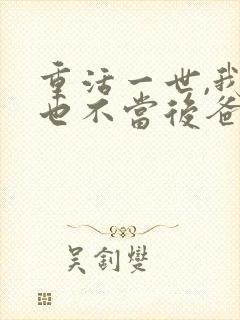 重活一世,我
也不當後爸
吴釗燮